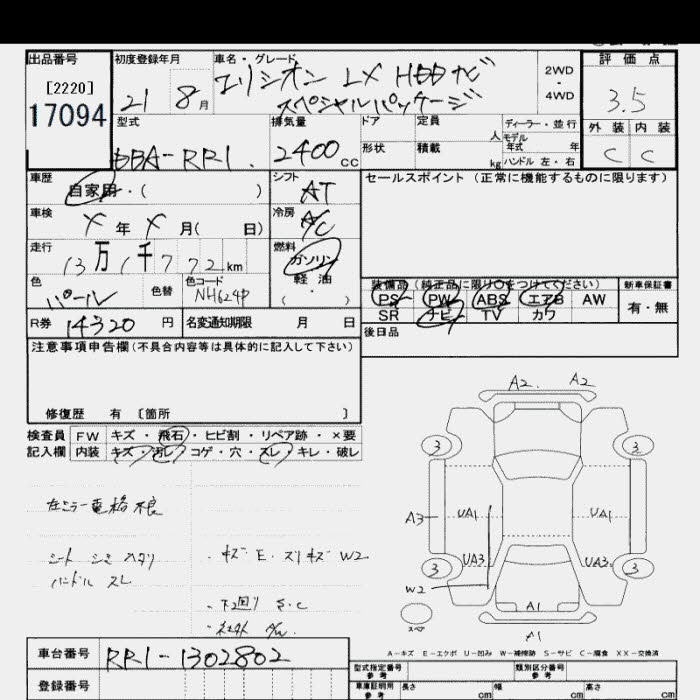 出品番号
[2220]
17094
初度登録年月
21 8月
車名・グレード
エリシオン LX HDDナビ
スペシャルパッケージ
2WD
4WD
評価点
3.5
外装 内装
C C
型式
DBA-RR1
排気量
2400cc
ドア
形状
定員
人
積載
kg
ディーラー・並行
モデル年式 年
ハンドル 左・右
車歴
自家用・( )
シフト
AT
セールスポイント (正常に機能するものに限ります)
車検
X年 X月( 日)
冷房
A/C
走行
13万1千772km
燃料
ガソリン
軽油
( ・ )
色
パール
色替
色コード
NH624P
装備品 (純正品に限り○をつけてください)
PS PW ABS エアB AW
SR ナビ TV カワ
新車保証書
有・無
R券 14320円
名変通知期限 月 日
後日品
注意事項申告欄(不具合内容等は具体的に記入して下さい)
修復歴 有 〔箇所 〕
検査員
記入欄
FW キズ・飛石・ヒビ割・リペア跡・×要
内装 キズ・汚レ・コゲ・穴・スレ・キレ・破レ
左ミラー電格不良
シート シミ スタリ
ハンドル スレ
・キズ E・スリキズ W2
・下回り S・C
A2 A2
3 3
A3 UA1 UA1
UA3 UA3
3 3
W2
A1
スペア
A1
A-キズ E-エクボ U-凹み W-補修跡 S-サビ C-腐食 XX-交換済
車台番号 RR1-1302802
登録番号
型式指定番号
参考
類別区分番号
参考
車庫証明用
参考
長さ cm
幅 cm
高さ cm